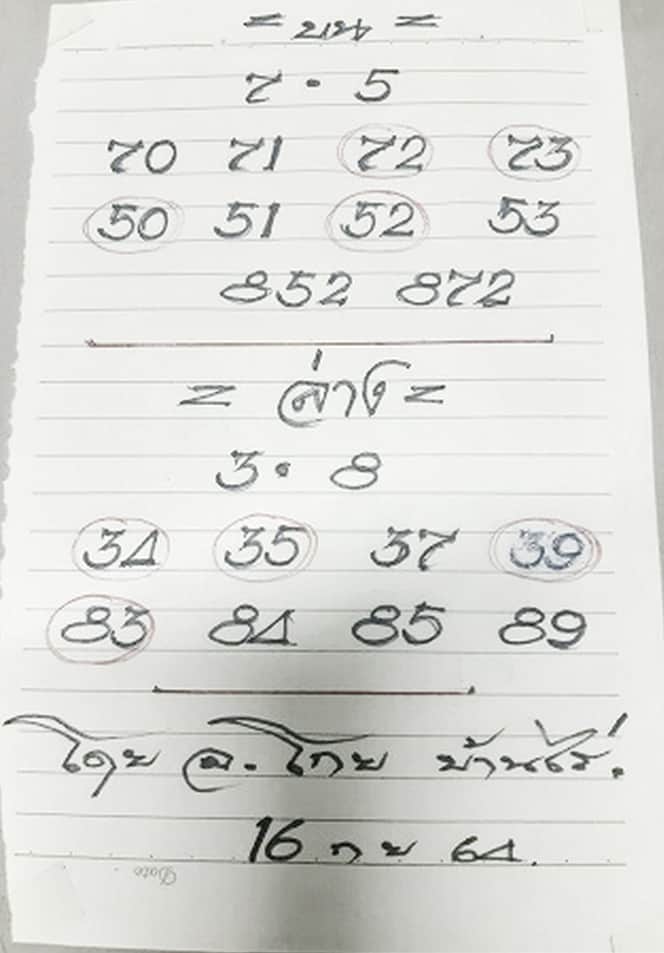 = บน =
7 • 5
70 71 72 73
50 51 52 53
852 872
= ล่าง =
3 • 8
34 35 37 39
83 84 85 89
โดย อ. โกย บ้านไร่.
16 กย 64.
Date